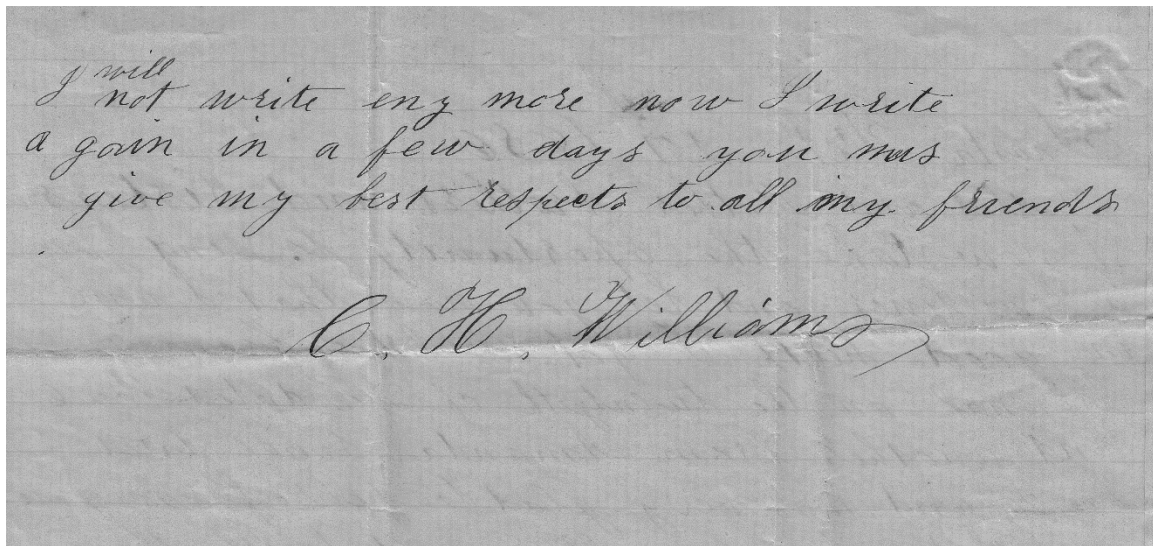 I will
not write eny more now I write
a gain in a few days you mus
give my best respects to all my friends
C. H. Williams